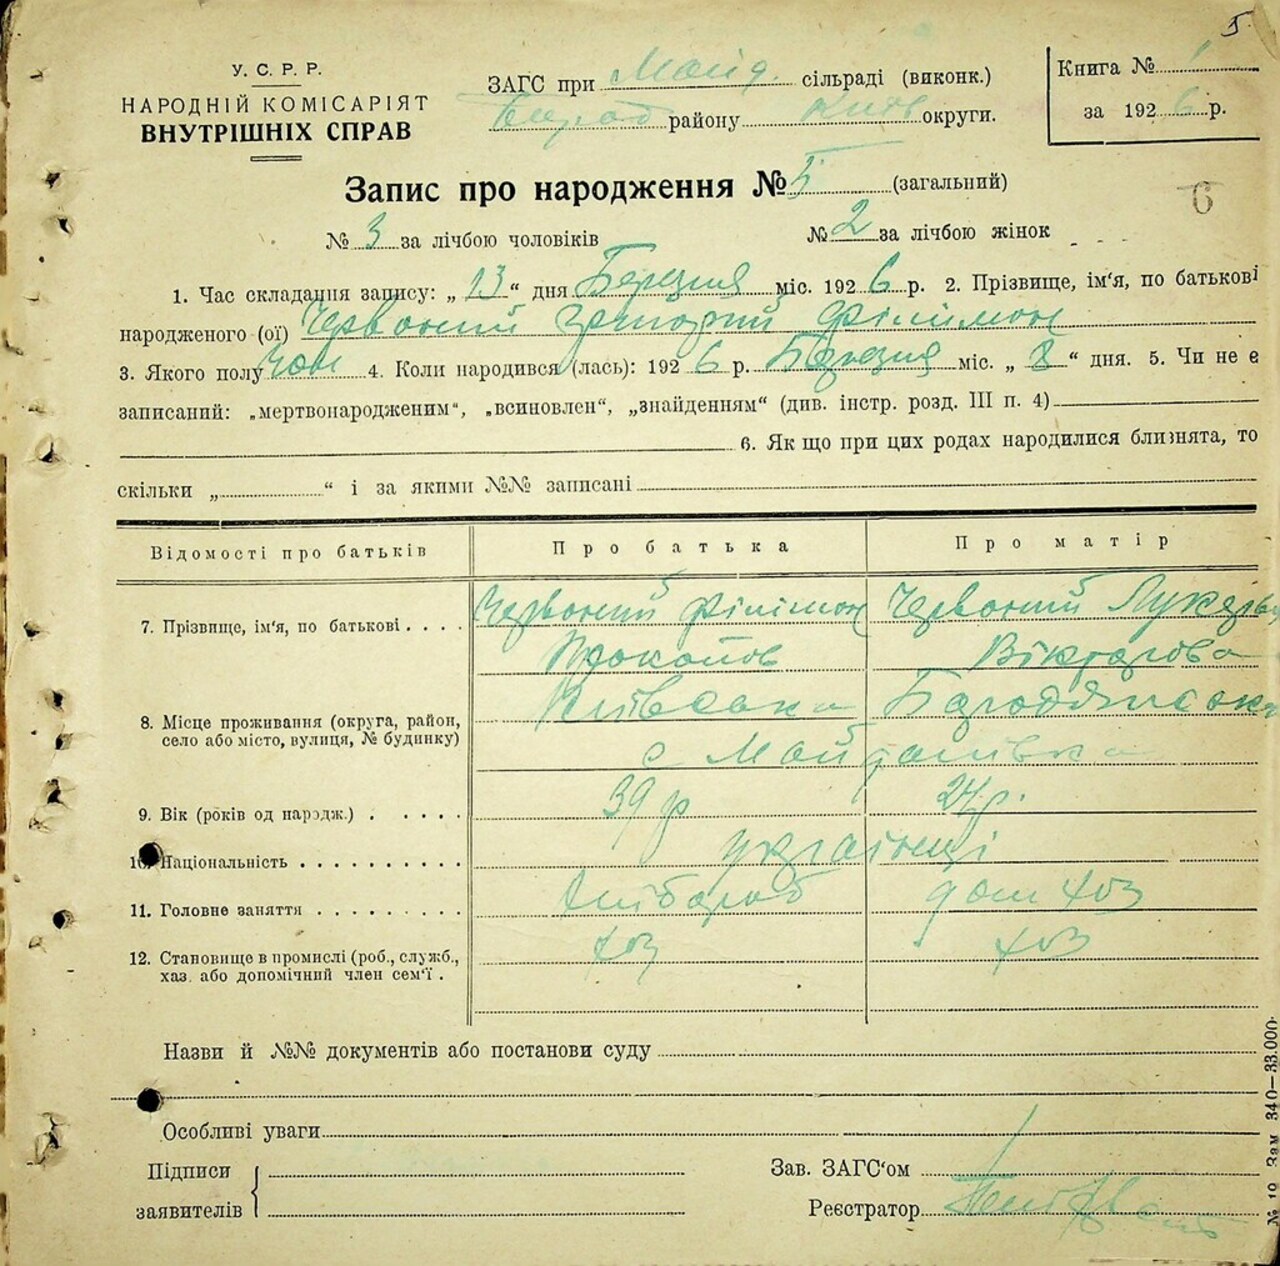 5.
У. С. Р. Р.
НАРОДНІЙ КОМІСАРІЯТ
ВНУТРІШНІХ СПРАВ
ЗАГС при Майд. сільраді (виконк.)
району Київ округи.
Книга №
за 1926 р.
Запис про народження № 5 (загальний)
6
№ 3 за лічбою чоловіків № 2 за лічбою жінок
1. Час складання запису: „ 13 “ дня Березня міс. 1926 р. 2. Прізвище, ім'я, по батькові
народженого (ої) Червоний Григорій Філімон
3. Якого полу чол 4. Коли народився (лась): 1926 р. Березня міс. „ 8 “ дня. 5. Чи не є
записаний: „мертвонародженим“, „всиновлен“, „знайденням“ (див. інстр. розд. III п. 4)
6. Як що при цих родах народилися близнята, то
скільки „ “ і за якими №№ записані
Відомості про батьків Про батька Про матір
7. Прізвище, ім'я, по батькові . . . . Червоний Філімон Червоний
Прокопов Вікторова
8. Місце проживання (округа, район, село або місто, вулиця, № будинку) Київська Бородянск
с Майданівка
9. Вік (років од народж.) . . . . . 39 р 24 р.
10. Національність . . . . . . . . . . українці
11. Головне заняття . . . . . . . . . Хлібороб дом хоз
12. Становище в промислі (роб., служб., хаз. або допомічний член сем'ї . хоз хоз
Назви й №№ документів або постанови суду
Особливі уваги
Підписи
заявителів
Зав. ЗАГС'ом
Реєстратор
№ 10 Зам 340—33.000.